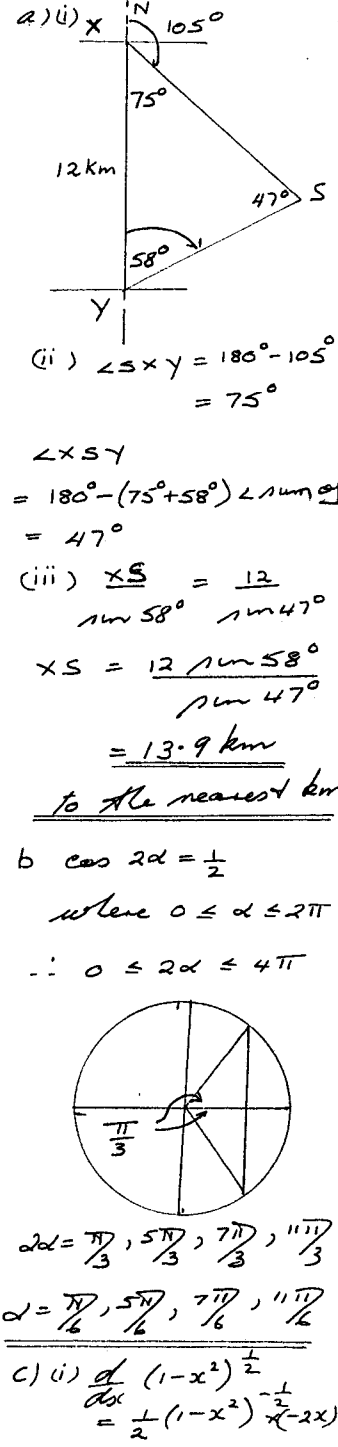 a) (i) X N 105°
75°
12 km
47° S
58°
Y
(ii) ∠SXY = 180° - 105°
= 75°
∠XSY
= 180° - (75° + 58°) ∠ sum of
= 47°
(iii) XS/sin 58° = 12/sin 47°
XS = 12 sin 58°/sin 47°
= 13.9 km
to the nearest km
b cos 2α = 1/2
where 0 ≤ α ≤ 2π
∴ 0 ≤ 2α ≤ 4π
π/3
2α = π/3, 5π/3, 7π/3, 11π/3
α = π/6, 5π/6, 7π/6, 11π/6
c) (i) d/dx (1-x²)^½
= ½ (1-x²)^-½ × (-2x)